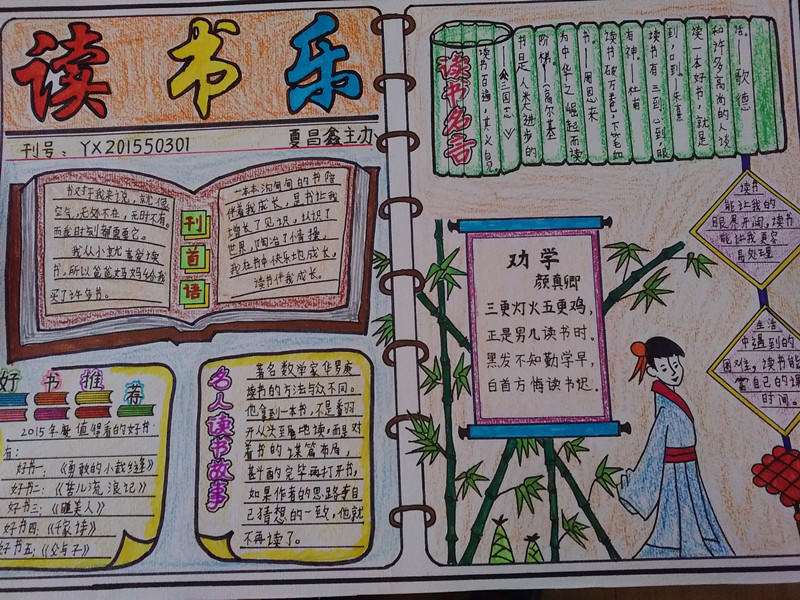 读书乐
刊号：YX201550301
夏昌鑫主办
刊首语
书对于我来说，就像
空气，无处不在，无时不有。
而我时刻都需要它。
我从小就喜爱读
书，所以爸爸妈妈给我
买了许多书。
一本本沉甸甸的书陪
伴着我成长，是书让我
增长了见识，认识了
世界，陶冶了情操。
我在书中快乐地成长，
读书伴我成长。
好书推荐
2015年最值得看的好书
有：
好书一：《勇敢的小裁缝》
好书二：《苦儿流浪记》
好书三：《睡美人》
好书四：《千家诗》
好书五：《父与子》
名人读书故事
著名数学家华罗庚
读书的方法与众不同。
他拿到一本书，不是翻开
从头至尾地读，而是对
着书的
猜的完毕再打开书，
如果作者的思路与自
己猜想的一致，他就
不再读了。
读书名言
读书百遍，其义自见
《三国志》
书是人类进步的
阶梯—(高尔基
为中华之崛起而读
书。—周恩来
读书破万卷，下笔如
有神。—杜甫
读书有三到心到，眼
到，口到。朱熹
读一本好书，就是
和许多高尚的人谈
话。—歌德
劝学
颜真卿
三更灯火五更鸡，
正是男儿读书时。
黑发不知勤学早，
白首方悔读书迟。
读书
能让我的
眼界开阔，读书
能让我更容
易处理
生活
中遇到的
困难，读书能
富自己的课
时间。